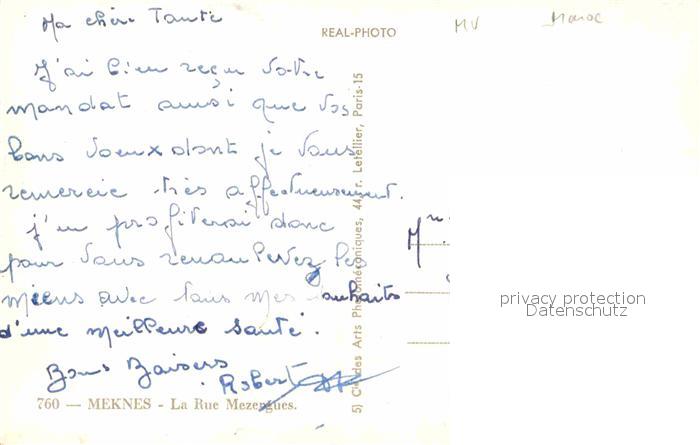 Ma chère Tante
J'ai bien reçu votre
mandat ainsi que vos
bons voeux dont je vous
remercie très affectueusement.
j'en profiterai donc
pour vous renouveler les
miens avec tous mes souhaits
d'une meilleure santé.
Bons Baisers
Robert
760 — MEKNES - La Rue Mezergues.
REAL-PHOTO
5) Cie des Arts Photomécaniques, 44, r. Letellier, Paris-15
MV
Maroc
privacy protection
Datenschutz